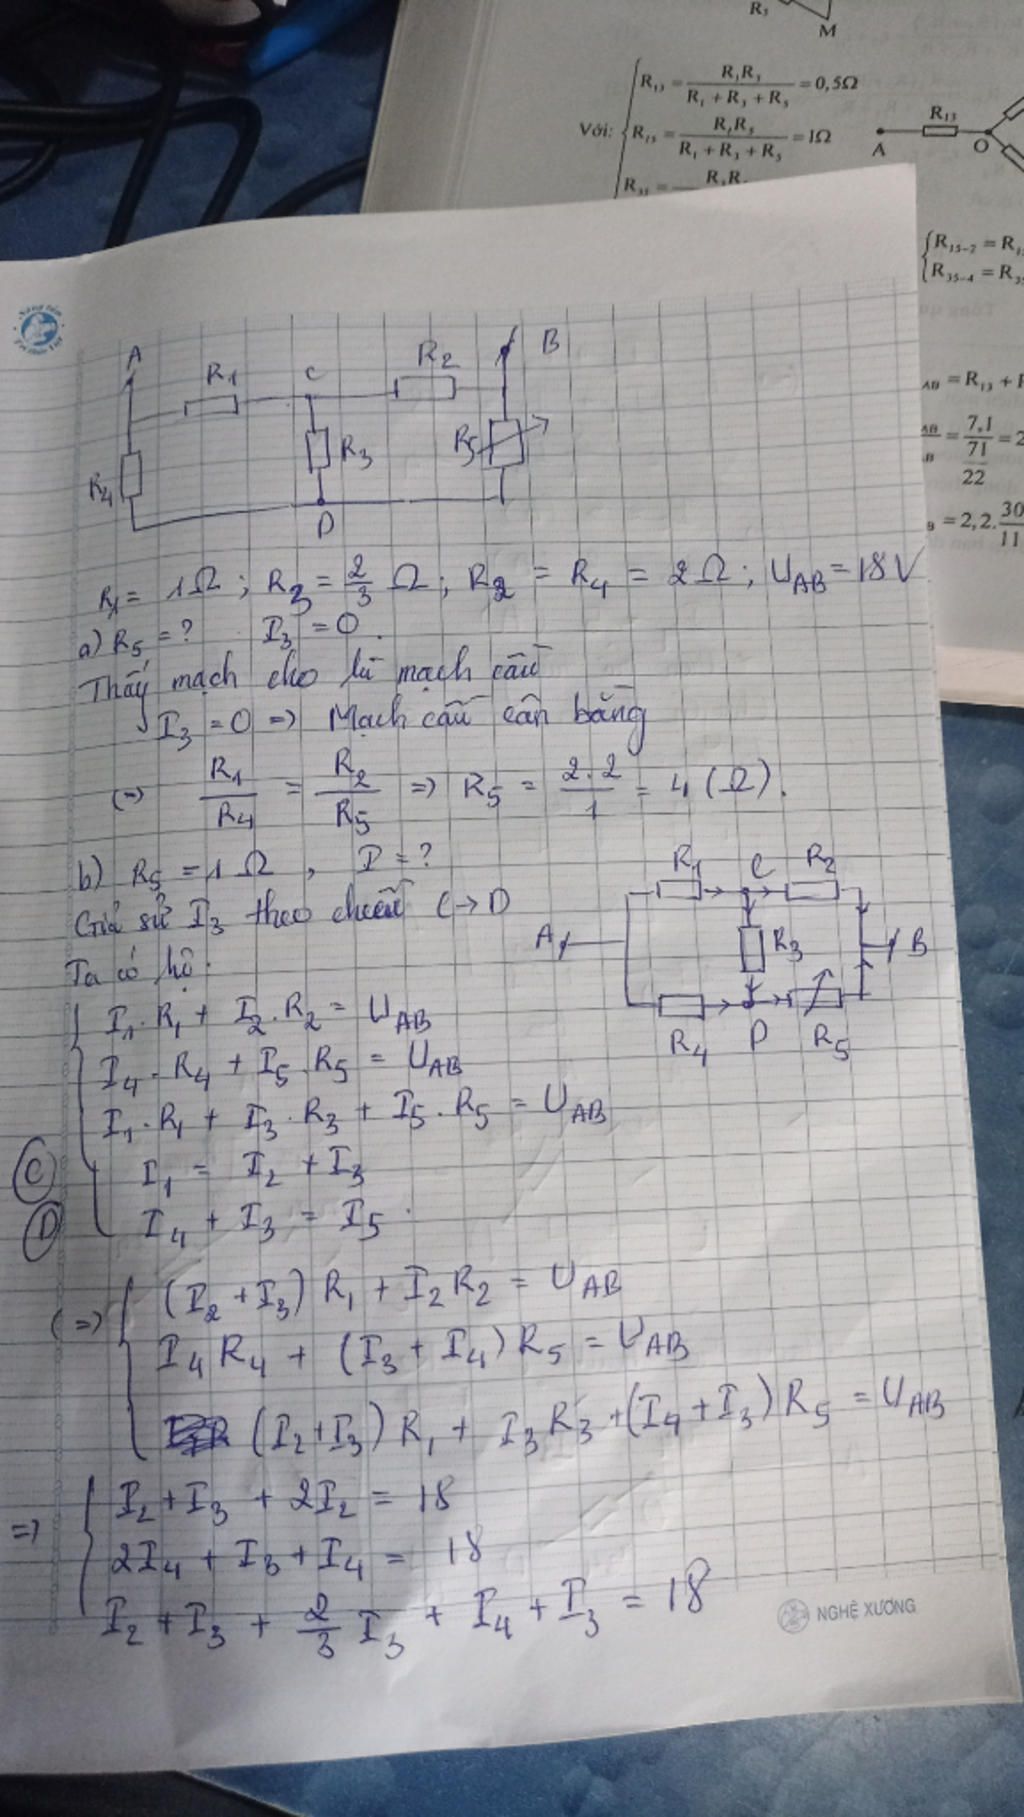 R₅
M
Với:
R₁₃ = R₁R₃ / (R₁ + R₃ + R₅) = 0,5Ω
R₁₅ = R₁R₅ / (R₁ + R₃ + R₅) = 1Ω
R₃₅ =
R₁₃
A
O
R₁₅₋₂ = R₁
R₃₅₋₄ = R₃
AB = R₁₃ +
= 7,1 / (71/22) = 2
= 2,2. 30/11
A
R₁
C
R₂
B
R₄
R₃
R₅
D
R₁ = 1Ω ; R₃ = 2/3 Ω ; R₂ = R₄ = 2Ω ; U_AB = 18V
a) R₅ = ? I₃ = 0.
Thấy mạch cho là mạch cầu
I₃ = 0 => Mạch cầu cân bằng
(=) R₁/R₄ = R₂/R₅ => R₅ = 2.2/1 = 4 (Ω).
b) R₅ = 1Ω , I = ?
Giả sử I₃ theo chiều C → D
Ta có hệ:
R₁
C
R₂
A
R₃
B
R₄
D
R₅
I₁.R₁ + I₂.R₂ = U_AB
I₄.R₄ + I₅.R₅ = U_AB
I₁.R₁ + I₃.R₃ + I₅.R₅ = U_AB
(C) I₁ = I₂ + I₃
(D) I₄ + I₃ = I₅.
(=>) (I₂ + I₃) R₁ + I₂R₂ = U_AB
I₄R₄ + (I₃ + I₄) R₅ = U_AB
(I₂ + I₃) R₁ + I₃R₃ + (I₄ + I₃) R₅ = U_AB
=> I₂ + I₃ + 2I₂ = 18
2I₄ + I₃ + I₄ = 18
I₂ + I₃ + 2/3 I₃ + I₄ + I₃ = 18
NGHỆ XƯƠNG